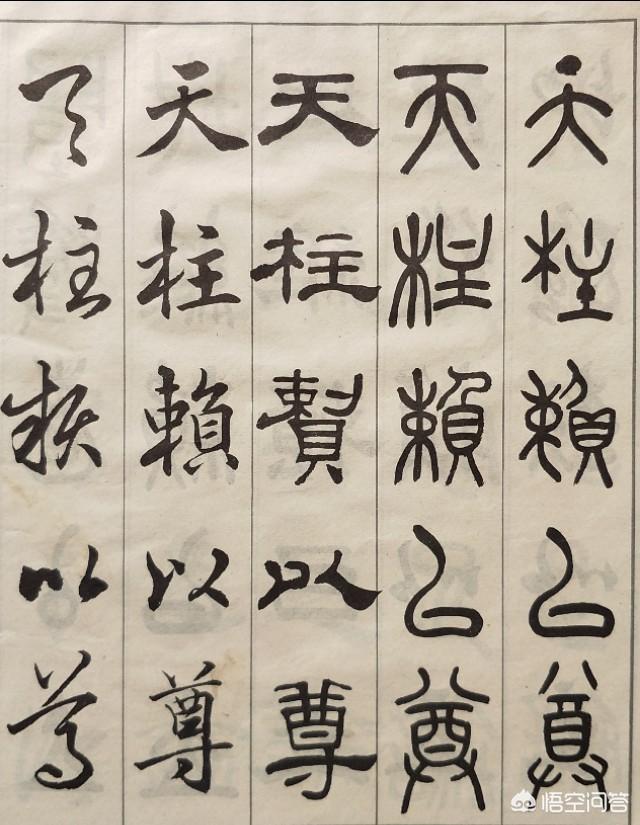 天柱賴以尊
天柱賴以尊
天柱賴以尊
天柱賴以尊
天柱賴以尊
悟空问答